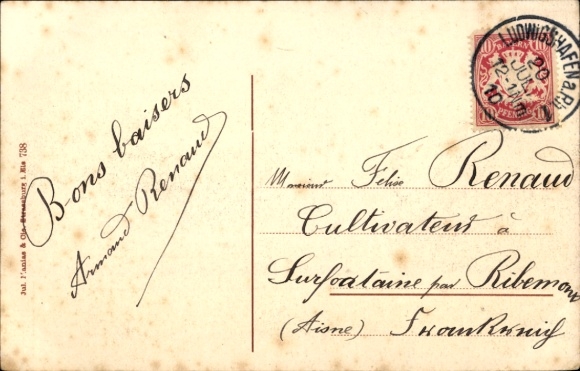 Bons baisers
Armand Renaud
Jul. Manias & Cie. Strassburg i. Els 738
10 BAYERN 10
10 PFENNIG 10
LUDWIGSHAFEN a. Rh.
20
JUL
12-1
10
1
Monsieur Félix Renaud
Cultivateur à
Surfontaine par Ribemont
(Aisne) Frankreich